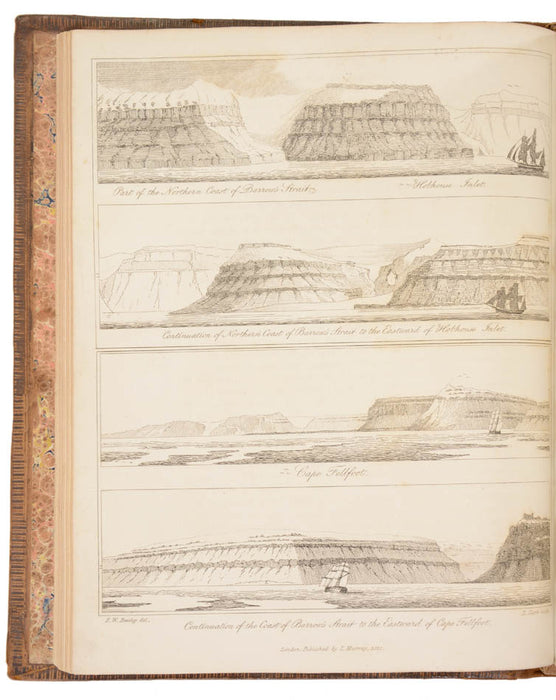 Part of the Northern Coast of Barrow's Strait.
Hothouse Inlet.
Continuation of Northern Coast of Barrow's Strait to the Eastward of Hothouse Inlet.
Cape Fellfoot.
F. W. Beechy del.
Continuation of the Coast of Barrow's Strait to the Eastward of Cape Fellfoot.
London, Published by J. Murray, 1821.